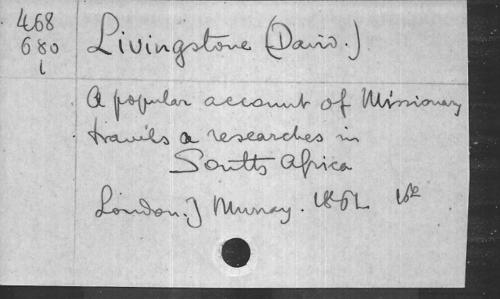 468
680
1
Livingstone (David.)
A popular account of Missionary
travels a researches in
South Africa
London. J Murray. 1861